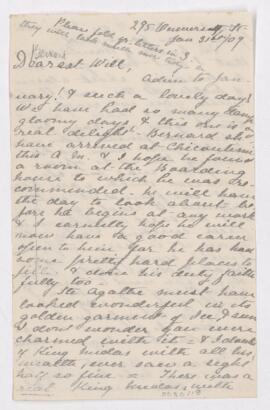 Please fold yr. letters in 3. -
295 University St.
they will look much more tidy.
Jan 31st/09
Dearest Will,
Adieu to Jan-
uary! & such a lovely day!
We have had so many
gloomy days & this one is a
real delight - Bernard sh
have arrived at Chicoutimi
this A.M. & I hope he found
a room at the Boarding
house to which he was re-
commended - he will have
the day to look about be
fore he begins at any work
& I earnestly hope he will
now have a good career
open to him for he has had
some pretty hard places to
fill & done his duty faith
fully too -
Ste. Agathe must have
looked wonderful in its
golden garment of Ice & sun
I don't wonder you were
charmed with it - & I doubt
if King Midas with all his
wealth, ever saw a sight
half so fine - There was a
real King Midas, with